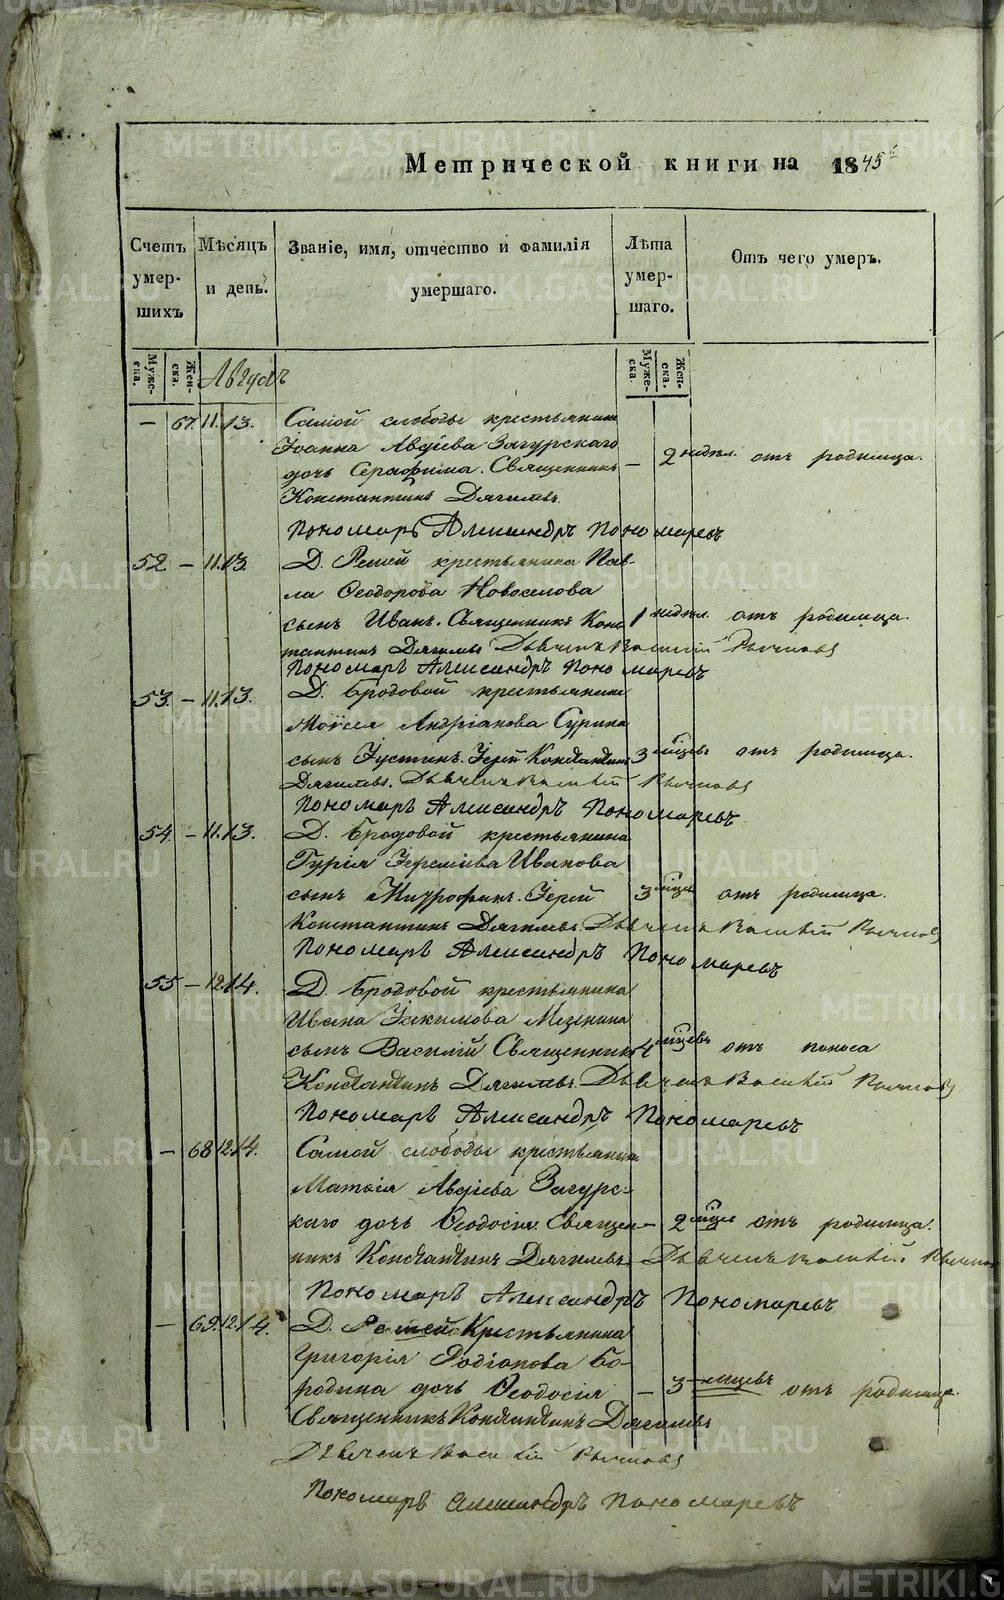 Метрической книги на 1845 г.
Счетъ умершихъ
Мѣсяцъ и день.
Званіе, имя, отчество и фамилія умершаго.
Лѣта умершаго.
Отъ чего умеръ.
Мужеска. Женска. Августъ Мужеска. Женска.
— 67. 11. 13. Самой слободы крестьянина
Іоанна Авдіева Загурскаго
дочь Серафима. Священникъ — 2 недѣл. отъ родимца.
Константинъ Дягилевъ.
Пономарь Александръ Пономаревъ
52 — 11. 13. Д. Речкой крестьянина Пав-
ла Ѳеодорова Новоселова
сынъ Иванъ. Священникъ Конс 1 недѣл. отъ родимца.
тантинъ Дягилевъ Дьячекъ Василій Рычковъ
Пономарь Александръ Пономаревъ
53. — 11. 13. Д. Бродовой крестьянина
Моѵсея Андріанова Сурина
сынъ Іустинъ. Іерей Константинъ 3 мѣсцевъ отъ родимца.
Дягилевъ. Дьячекъ Василій Рычковъ
Пономарь Александръ Пономаревъ
54. — 11. 13. Д. Бродовой крестьянина
Гурія Іереміева Иванова
сынъ Митрофанъ. Іерей 3 мѣсце отъ родимца.
Константинъ Дягилевъ. Дьячекъ Василій Рычковъ
Пономарь Александръ Пономаревъ
55 — 12. 14. Д. Бродовой крестьянина
Ивана Іакимова Мезенина
сынъ Василій Священникъ 4 мѣсцевъ отъ поноса
Константинъ Дягилевъ. Дьячекъ Василій Рычковъ
Пономарь Александръ Пономаревъ
— 68 12. 14. Самой слободы крестьянина
Матѳія Авдіева Загурс-
каго дочь Ѳеодосія. Священ- — 2 мѣсце отъ родимца.
никъ Константинъ Дягилевъ Дьячекъ Василій Рычковъ
Пономарь Александръ Пономаревъ
— 69. 12. 14. Д. Крестьянина
Григорія Родіонова Бо-
родина дочь Ѳеодосія — 3 мѣсцевъ отъ родимца.
Священникъ Константинъ Дягилевъ
Дьячекъ Василій Рычковъ
Пономарь Александръ Пономаревъ
METRIKI.GASO-URAL.RU